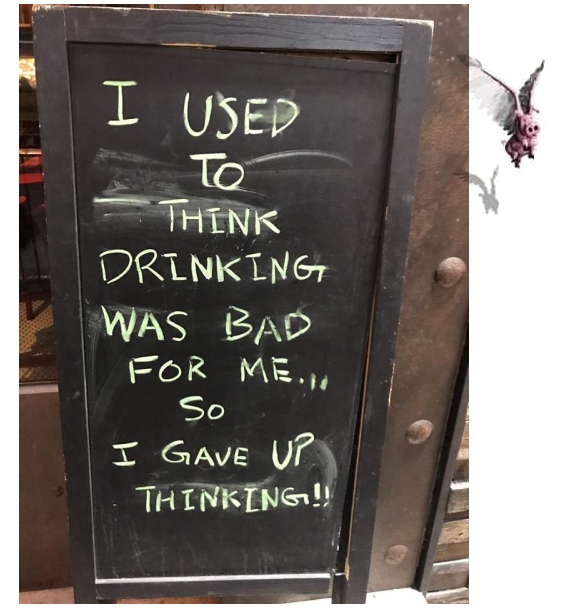 I USED
TO
THINK
DRINKING
WAS BAD
FOR ME...
SO
I GAVE UP
THINKING!!